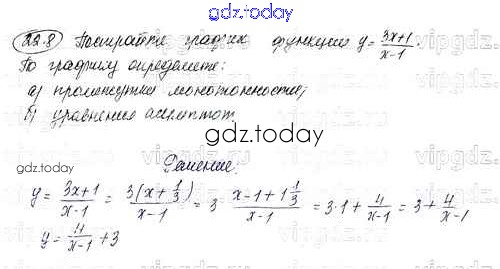 gdz.today
22.8 Постройте график функции y = \frac{3x+1}{x-1}.
По графику определите:
а) промежутки монотонности;
б) уравнения асимптот
gdz.today
Решение:
y = \frac{3x+1}{x-1} = \frac{3(x+\frac{1}{3})}{x-1} = 3 · \frac{x-1+1\frac{1}{3}}{x-1} = 3·1 + \frac{4}{x-1} = 3 + \frac{4}{x-1}
y = \frac{4}{x-1} + 3
gdz.today